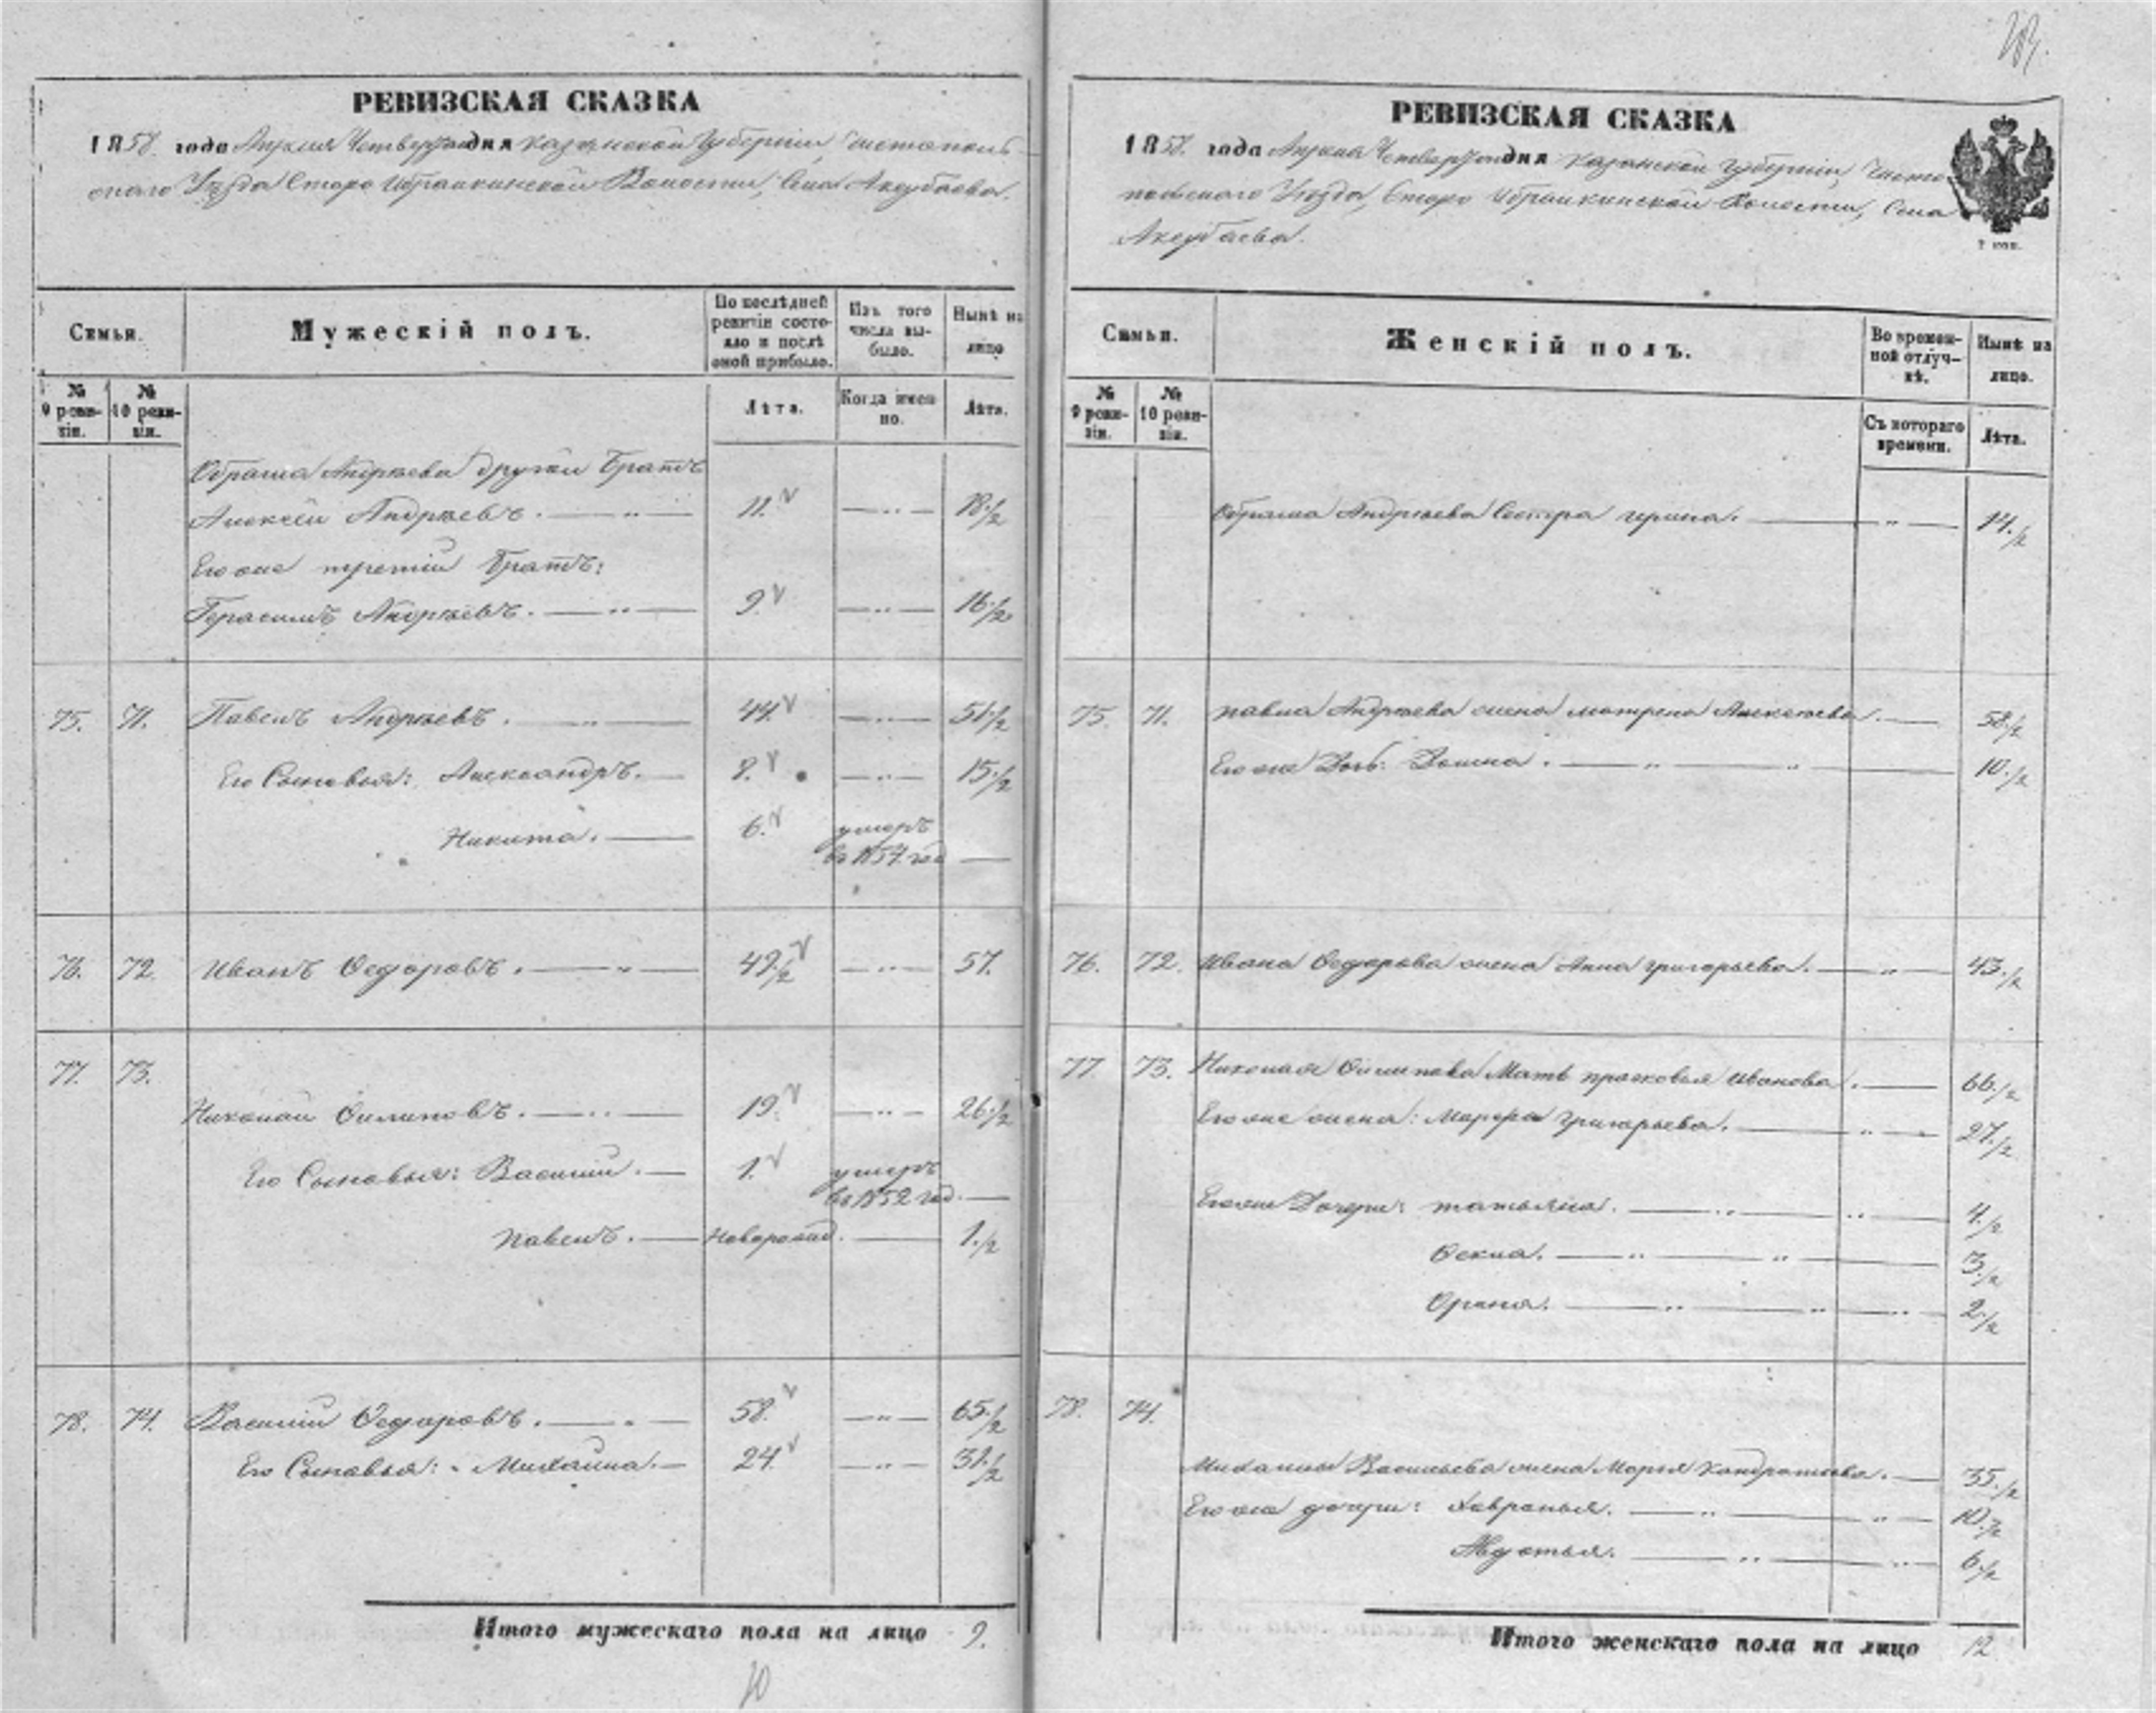 РЕВИЗСКАЯ СКАЗКА
1858. года Апреля Четвертаго дня Казанской Губерніи, Чистополь-
скаго Уѣзда Старо Ибрайкинской Волости, Села Аксубаева.
Семьи.
Мужескій полъ.
По послѣдней ревизіи состояло и послѣ оной прибыло.
Изъ того числа выбыло.
Нынѣ на лицо
№ 9 ревизіи.
№ 10 ревизіи.
Лѣта.
Когда именно.
Лѣта.
Андрѣева другой Братъ
Алексѣй Андрѣевъ. 11. 18 1/2
Его же третій Братъ:
Герасимъ Андрѣевъ. 9. 16 1/2
75. 71. Павелъ Андрѣевъ. 44. 51 1/2
Его Сыновья: Александръ. 8. 15 1/2
Никита. 6. умеръ
въ 1857 год
76. 72. Иванъ Ѳедоровъ. 49 1/2 57.
77. 73.
Николай Филиповъ. 19. 26 1/2
Его Сыновья: Василий. 1. умеръ
въ 1852 год.
Павелъ. Неворожд. 1 1/2
78. 74. Василий Ѳедоровъ. 58. 65 1/2
Его Сыновья: Михайла. 24. 31 1/2
Итого мужескаго пола на лицо 9.
РЕВИЗСКАЯ СКАЗКА
1858. года Апреля Четвертаго дня Казанской Губерніи, Чисто-
польскаго Уѣзда, Старо Ибрайкинской Волости, Села
Аксубаева.
Семьи.
Женскій полъ.
Во временной отлучкѣ.
Нынѣ на лицо.
№ 9 ревизіи.
№ 10 ревизіи.
Съ котораго времени.
Лѣта.
Андрѣева Сестра Ирина. 14 1/2
75. 71. Павла Андрѣева жена Матрена Алексѣева. 58 1/2
Его же Дочь: 10 1/2
76. 72. Ивана Ѳедорова жена Анна Григорьева. 43 1/2
77 73. Николая Филипова Мать Прасковья Иванова. 66 1/2
Его же жена: Марфа Григорьева. 27 1/2
Его же Дочери: Татьяна. 4 1/2
Ѳекла. 3 1/2
Орина. 2 1/2
78. 74.
Михайлы Васильева жена Марья Кондратьева. 35 1/2
Его же дочери: Хавронья. 10 1/2
Авдотья. 6 1/2
Итого женскаго пола на лицо 12